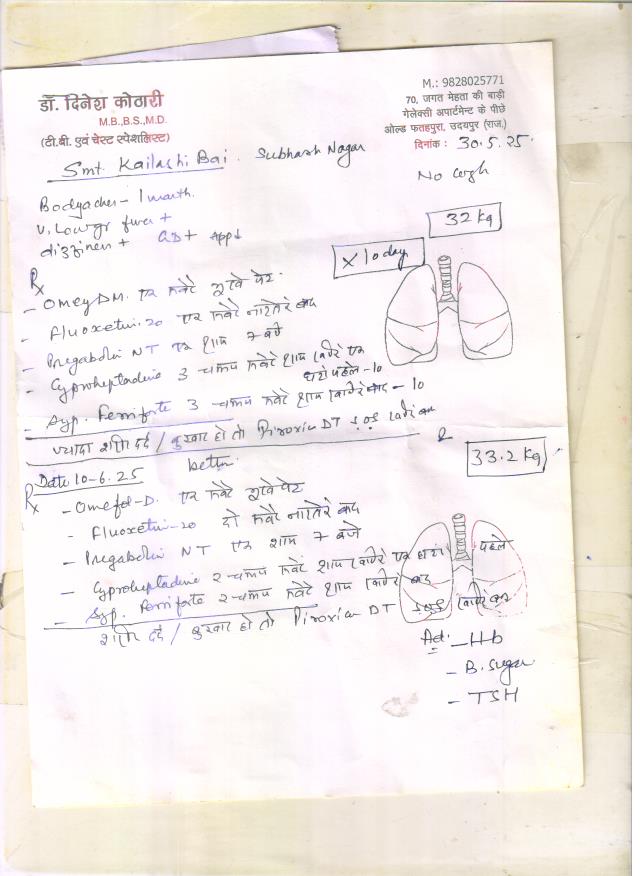 डॉ. दिनेश कोठारी
M.B.,B.S.,M.D.
(टी.बी. एवं चेस्ट स्पेशलिस्ट)
M.: 9828025771
70, जगत मेहता की बाड़ी
गेलेक्सी अपार्टमेन्ट के पीछे
ओल्ड फतहपुरा, उदयपुर (राज.)
दिनांक : 30.5.25.
Smt. Kailashi Bai. Subhash Nagar
No cough
Bodyaches - 1 month.
V. Low gr fever +
dizziness + GD+ App↓
32 kg
x 10 day
Rx
- Omez DM. एक सवेरे भूखे पेट.
- Fluoxetin-20 एक सवेरे नाश्ते के बाद
- Pregabalin NT एक शाम 7 बजे
- Cyproheptadine 3 चम्मच सवेरे शाम खाने के एक
घंटा पहले-10
- Syp. Ferriforte 3 चम्मच सवेरे शाम खाने के बाद - 10
ज्यादा शरीर दर्द / बुखार हो तो Piroxicam DT S.O.S खाने के बाद
Date 10-6.25
better.
33.2 kg
Rx
- Omefol-D. एक सवेरे भूखे पेट
- Fluoxetin-20 दो सवेरे नाश्ते के बाद
- Pregabalin NT एक शाम 7 बजे
- Cyproheptadine 2 चम्मच सवेरे शाम खाने के एक घंटा पहले
- Syp. Ferriforte 2 चम्मच सवेरे शाम खाने के बाद
शरीर दर्द / बुखार हो तो Piroxicam DT SOS खाने के बाद
Ad:- Hb
- B. Sugar
- TSH